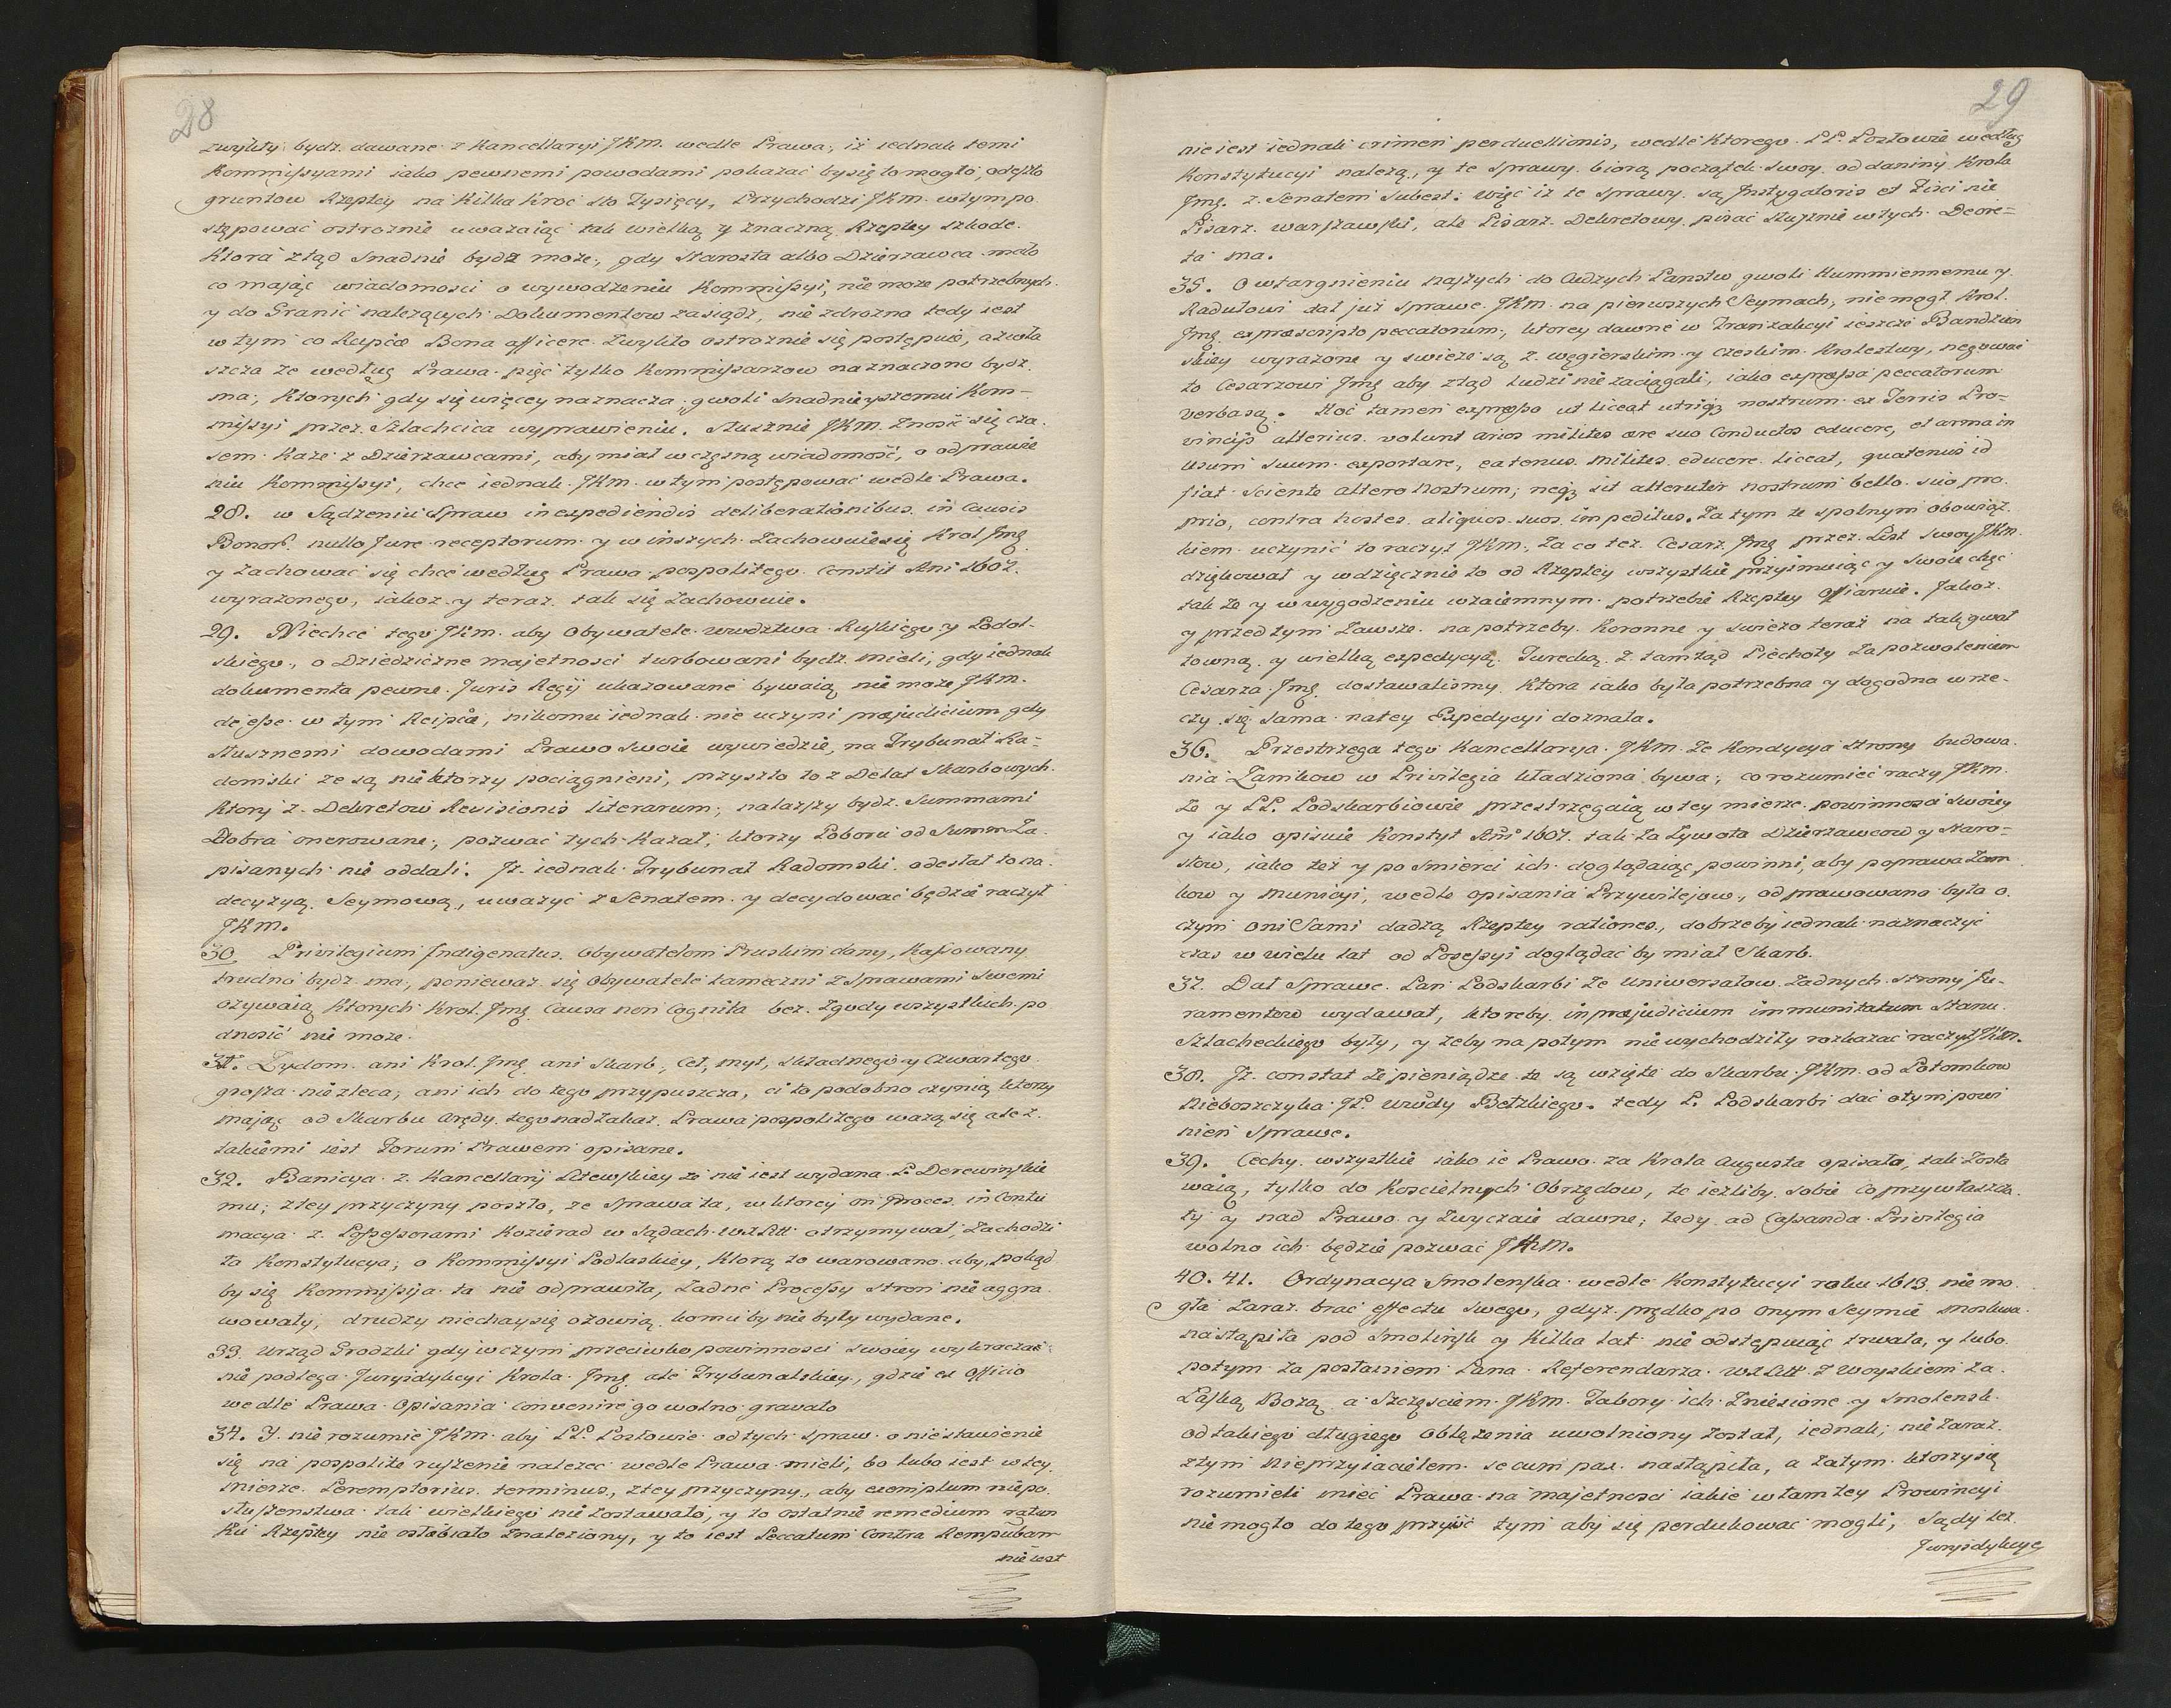 28
zwykły bydz dawane z Kancellaryi JKm. wedle Prawa, iż iednak temi
Kommissyami iako pewnemi powodami pokazać by się to mogło, odeszło
gruntow Rzeptey na Kilka Kroć sto Tysięcy, Przychodzi JKm. w tym po
stępować ostroznie uwazaiąc tak wielką y znaczną Rzeptey szkode.
Ktora ztąd snadnie bydz może, gdy Starosta albo Dzierzawca mało
co mając wiadomosci o wywodzeniu Kommissyi, nie może potrzebnych
y do Granic nalezących Dokumentow zasiądz, nie zdrozno tedy iest
w tym co Reipcæ Bona afficere zwykło ostroznie się postępuie, azwła
szcza że według Prawa pięć tylko Kommissarzow naznaczono bydz
ma, Ktorych gdy się więcey naznacza gwoli snadnieyszemu Kom-
missyi przez Szlachcica wyprawieniu. Słusznie JKm. znosić się cza
sem Kaze z Dzierzawcami, aby miał wczesną wiadomość, o odprawie
niu Kommissyi, chce iednak JKm. w tym postępować wedle Prawa.
28. w Sądzeniu Spraw in expediendis deliberationibus in Causis
Bonor. nullo Jure receptorum y w inszych Zachowuie się Krol Jmę
y zachować się chce według Prawa pospolitego Constit Ani 1607.
wyrazonego, iakoz y teraz tak się Zachowuie.
29. Niechce tego JKm. aby Obywatele wwdztwa Ruskiego y Podol-
skiego, o Dziedziczne majetnosci turbowani bydz mieli, gdy iednak
dokumenta pewne Juris Regij ukazowane bywaią nie może JKm.
deesse w tym Reipcæ, nikomu iednak nie uczyni præjudicium gdy
słusznemi dowodami Prawo swoie wywiedzie, na Trybunał Ra-
domski ze są niektorzy pociągnieni, przyszło to z Delat Skarbowych
Ktory z Dekretow Revisionis literarum, nalazszy bydz Summami
Dobra onerowane, pozwać tych Kazał, ktorzy Poboru od Summ Za
pisanych nie oddali. Jz iednak Trybunał Radomski odesłał to na
decyzyą Seymową, uważyć z Senatem y decydować będzie raczył
JKm.
30 Privilegium Indigenatus Obywatelom Pruskim dany, Kassowany
trudno bydz ma, poniewaz się Obywatele tameczni z Sprawami Swemi
ozywaią Ktorych Krol Jmę Causa non Cognita bez Zgody wszystkich po
dnosić nie może.
31. Zydom ani Krol Jmę ani Skarb, Ceł, myt, składnego y Czwartego
grosza nie zleca, ani ich do tego przypuszcza, ci to podobno czynią ktorzy
mając od Skarbu Arędy tego nad Zakaz Prawa pospolitego wazą się ale z
takiemi iest Forum Prawem opisane.
32. Banicya z Kancellarij Litewskiey że nie iest wydana P. Derewinskie
mu, z tey przyczyny poszło, ze Sprawa ta, w ktorey on Proces in Contu
macya z Possessorami Kozierad w Sądach WXLitt otrzymywał, Zachodzi
ta Konstytucya, o Kommissyi Podlaskiey, Ktorą to warowano aby, pokąd
by się Kommissija ta nie odprawiła, Żadne Processy stron nie aggra
wowały, drudzy niechay się ozowią komu by nie były wydane.
33 Urząd Grodzki gdy w czym przeciwko powinnosci swoiey wykraczać
nie podlega Juryzdykcyi Krola Jmę ale Trybunalskiey, gdzie ex Officio
wedle Prawa Opisania Convenire go wolno gravato
34. Y nie rozumie JKm. aby PP. Posłowie od tych spraw o niestawienie
się na pospolite ruszenie nalezec wedle Prawa mieli, bo lubo iest w tey
mierze Peremptorius terminus, z tey przyczyny, aby exemplum niepo
słuszenstwa tak wielkiego nie zostawało, y to ostatnie remedium ratun
ku Rzeptey nie osłabiało Znaleziony, y to iest Peccatum Contra Rempubam
nie iest
29
nie iest iednak crimen perduellionis, wedle Ktorego PP. Posłowie według
Konstytucyi należą, y te Sprawy biorą początek swoy od daniny Krola
Jmę z Senatem Subest: więc iz te sprawy są Instygatoris et Fisci nie
Pisarz warszawski, ale Pisarz Dekretowy pisać słusznie w tych Decre-
ta ma.
35. O wtargnieniu naszych do Cudzych Panstw gwoli Hummiennemu y
Radułowi dał już sprawe JKm. na pierwszych Seymach, niemogł Krol
Jmę ex præscripto peccatorum, ktorey dawne w Tranzakcyi ieszcze Bandzien
skiey wyrazone y swieze są z węgierskim y czeskim Krolestwy, negować
to Cesarzowi Jmę aby ztąd ludzi nie zaciągali, iako expressa peccatorum
verba są. Hoc tamen expresso ut liceat utriq3 nostrum ex Terris Pro-
vincijs alterius volunt arios milites ære suo Conductos educere, et arma in
usum suum exportare, ea tenus Milites educere liceat, quatenus id
fiat Sciente altero Nostrum, neq3 sit alteruter nostrum bello suo pro
prio, contra hostes aliquos suos impeditus. Za tym te spolnym obowiąz
kiem uczynić to raczył JKm., Za co też Cesarz Jmę przez List swoy JKm.
dziękował y wdzięcznie to od Rzeptey wszystkie przyimuiąc y Swoie chęć
tak że y w wygodzeniu wzaiemnym potrzebie Rzeptey offiaruie. Jakoz
y przed tym Zawsze na potrzeby Koronne y swiezo teraz na takgwał
towną y wielką expedycyą Turecką z tamtąd Piechoty za pozwoleniem
Cesarza Jmę dostawalismy Ktora iako była potrzebna y dogodna w rze-
czy się sama na tey Expedycyi doznała.
36. Przestrzega tego Kancellarya JKm. że Kondycya strony budowa
nia Zamkow w Privilegia kładziona bywa, co rozumieć raczy JKm.
że y PP. Podskarbiowie przestrzegaią w tey mierze powinnosci swoiey
y iako opisuie Konstyt Ani 1607. tak za Zywota Dzierzawcow y Staro-
stow, iako też y po Smierci ich doglądaiąc powinni, aby poprawa Zam
kow y municyi, wedle opisania Przywilejow, odprawowano było o
czym oni Sami dadzą Rzeptey rationes, dobrze by iednak naznaczyć
czas w wielu lat od Possessyi doglądać by miał Skarb.
37. Dał Sprawe Pan Podskarbi że Uniwersałow żadnych strony Ju-
ramentow wydawał, ktoreby in præjudicium immunitatum Stanu
Szlacheckiego były, y zeby na potym nie wychodziły rozkazać raczył JKm.
38. Jz constat że pieniądze te są wzięte do Skarbu JKm. od Potomkow
Nieboszczyka JP. wwdy Bełzkiego. tedy P. Podskarbi dać o tym powi
nien Sprawe.
39. Cechy wszystkie iako ie Prawo za Krola Augusta opisało, tak Zosta
waią, tylko do Koscielnych Obrzędow, te ieżliby sobie co przywłaszcza
ły y nad Prawo y Zwyczaie dawne, tedy ad Cassanda Privilegia
wolno ich będzie pozwać JKm.
40. 41. Ordynacya Smolenska wedle Konstytucyi roku 1613. nie mo
gła zaraz brać effectu swego, gdyz prędko po onym Seymie Moskwa
nastąpiła pod Smolińsk y Kilka lat nie odstępuiąc trwała, y lubo
potym za postaniem Pana Referendarza WXLitt z Woyskiem za
Łaską Bożą a Szczęsciem JKm. Tabory ich Zniesione y Smolensk
od takiego długiego Oblęzenia uwolniony został, iednak, nie zaraz
z tym Nieprzyiacielem secum pax nastąpiła, a zatym ktorzy się
rozumieli mieć Prawa na majetnosci iakie w tamtey Prowincyi
nie mogło do tego przyiść tym aby się perdukować mogli, Sądy też
Juryzdykcye